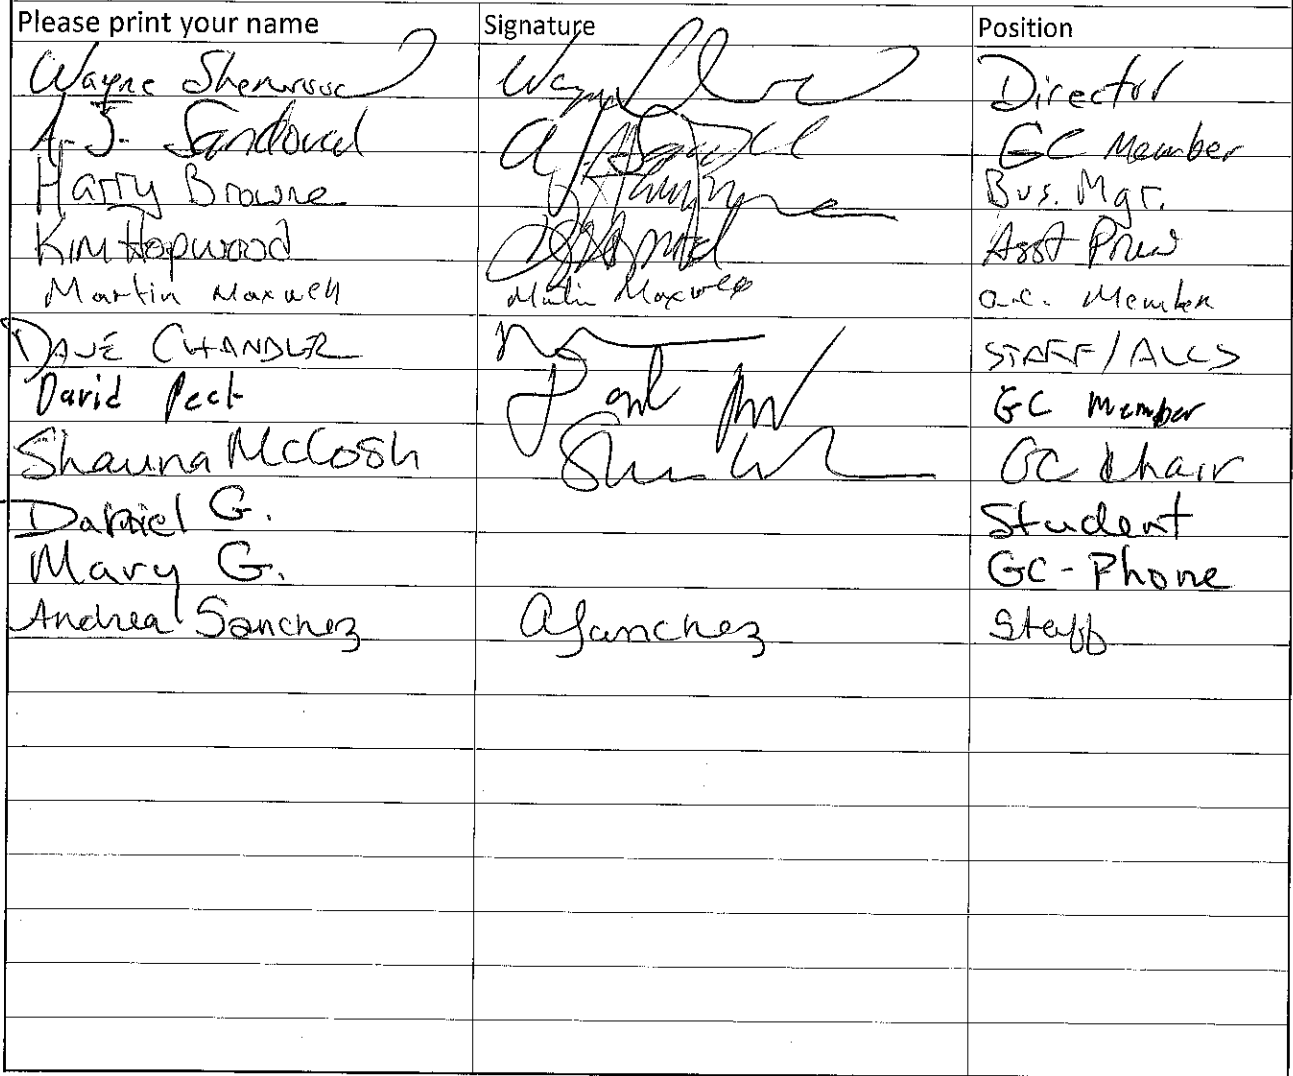 Please print your name Signature Position
Wayne Sherwood Wayne Director
A.J. Sandoval AJ GC Member
Harry Browne Bus. Mgr.
Kim Hopwood Asst
Martin Maxwell Martin Maxwell Member
DAVE CHANDLER STAFF/ALCS
David Peck GC Member
Shauna McCosh GC Chair
Daniel G. Student
Mary G. GC-Phone
Andrea Sanchez ASanchez Staff